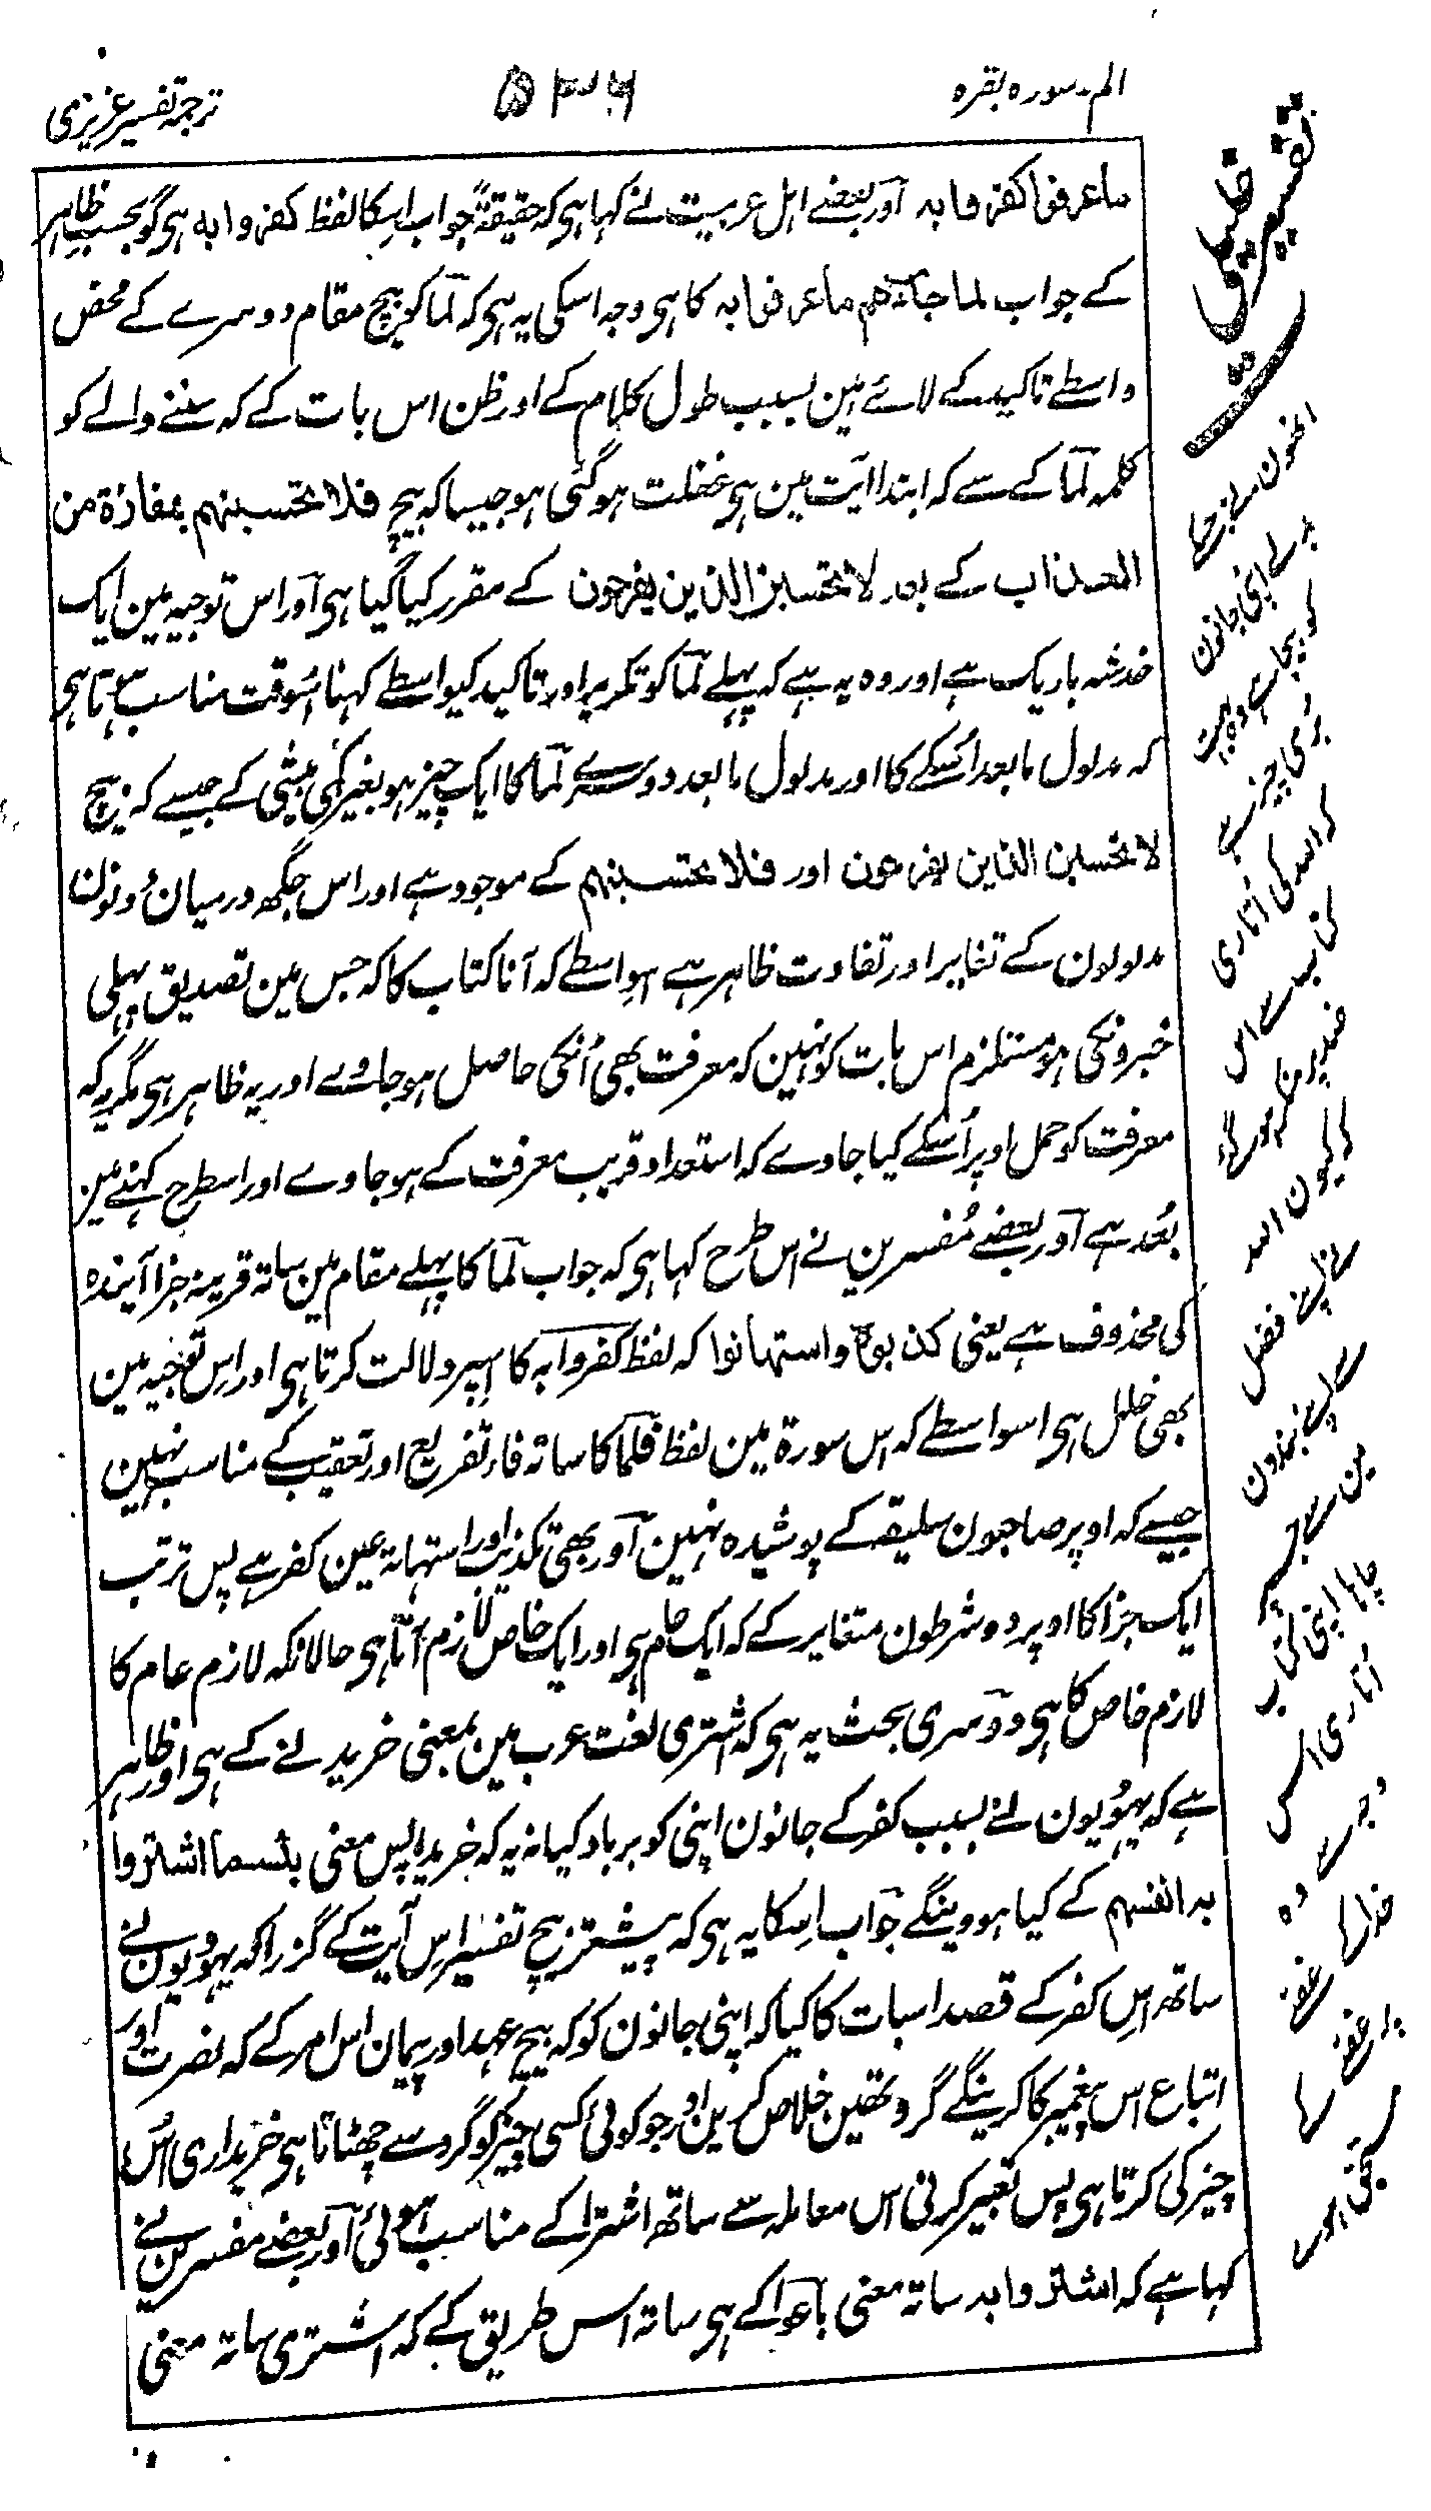 الم۔سورہ بقرہ
۵۳۶
ترجمہ تفسیر عزیزی
ماعرفوا کفروا بہ آور بعضے اہل عربیت نے کہا ہی کہ حقیقۃً جواب اِسکا لفظ کفروا بہ ہی گو بحسب ظاہر
کے جواب لما جاءھم ماعرفوا بہ کا ہی وجہ اسکی یہ ہی کہ لمّا کو بیچ مقام دوسرے کے محض
واسطے تاکید کے لائے ہین بسبب طول کلام کے اور ظن اس بات کے کہ سننے والے کو
کلمہ لمّا کے سے کہ ابتدا آیت مین ہی غفلت ہو گئی ہو جیسا کہ بیچ فلا تحسبنہم بمفازۃ من
العذاب کے بعد لا تحسبن الذین یفرحون کے مقرر کیا گیا ہی آور اس توجیہ مین ایک
خدشہ باریک ہے اور وہ یہ ہے کہ پہلے لمّا کو تکریر اور تاکید کیواسطے کہنا اُسوقت مناسب ہوتا ہی
کہ مدلول مابعد اُسکے کا اور مدلول مابعد دوسرے لمّا کا ایک چیز ہو بغیر کمی بیشی کے جیسے کہ بیچ
لا تحسبن الذین یفرحون اور فلا تحسبنہم کے موجود ہے اور اس جگہ درمیان دونون
مدلولون کے تغایر اور تفاوت ظاہر ہے اسواسطے کہ آنا کتاب کا کہ جس مین تصدیق پہلی
خبرونکی ہو مستلزم اس بات کو نہین کہ معرفت بھی اُنکی حاصل ہو جاوے اور یہ ظاہر ہی مگر یہ کہ
معرفت کو حمل اوپر اُسکے کیا جاوے کہ استعداد قریب معرفت کے ہو جاوے اور اسطرح کہنے مین
بُعد ہے آور بعضے مُفسرین نے اس طرح کہا ہی کہ جواب لمّا کا پہلے مقام مین ساتہ قرینہ جزا آیندہ
کی محذوف ہے یعنی کذبوہ واستہانوا کہ لفظ کفروا بہ کا اسپر دلالت کرتا ہی اور اِس توجیہ مین
بھی خلل ہی اسواسطے کہ اس سورۃ مین لفظ فلمّا کا ساتہ فاء تفریع اور تعقیب کے مناسب نہین
جیسے کہ اوپر صاحبون سلیقہ کے پوشیدہ نہین آور بھی تکذیب اور استہانۃ عین کفر ہے پس ترتب
ایک جزا کا اوپر دو شرطون متغایر کے کہ ایک عام ہی اور ایک خاص لازم آتا ہی حالانکہ لازم عام کا
لازم خاص کا ہی دوسری بحث یہ ہی کہ اشتری لغت عرب مین بمعنی خریدنے کے ہی اور ظاہر
ہے کہ یہودیون نے بسبب کفر کے جانون اپنی کو برباد کیا نہ یہ کہ خریدا پس معنی بئسما اشتروا
بہ انفسہم کے کیا ہووینگے جواب اِسکا یہ ہی کہ پیشتر بیچ تفسیر اِس آیت کے گزرا کہ یہودیون نے
ساتھ اِس کفر کے قصد اسبات کا کیا کہ اپنی جانون کو کہ بیچ عہد اور پیمان اس امر کے کہ نصرت اور
اتباع اس پیغمبر کا کرینگے گرو تھین خلاص کرین اور جو کوئی کسی چیز کو گرو سے چھٹاتا ہی خریداری اُس
چیز کی کرتا ہی پس تعبیر کرنی اس معاملہ سے ساتھ اشترا کے مناسب ہوئی آور بعضے مفسرین نے
کہا ہے کہ اشتروا بہ ساتہ معنی باعوا کے ہی ساتہ اس طریق کے کہ اشتری ساتہ معنی
بدلے اپنی جانون
بُری چیز ہے
کہ اللہ کی اُتاری
کتاب سے اس
کہ کیون اللہ
نے اپنے فضل
سے اپنے بندون
مین سے جس پر
چاہا اپنی کتاب
اُتاری اس
وجہ سے وہ